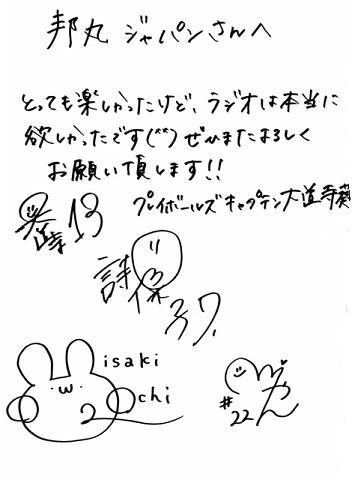 邦丸 ジャパンさんへ
とっても楽しかったけど、ラジオは本当に
欲しかったです(^^) ぜひまたよろしく
お願い頂します!!
プレイボールズキャプテン大道寺葵
13
詩保
37.
isaki
chi
2
#22